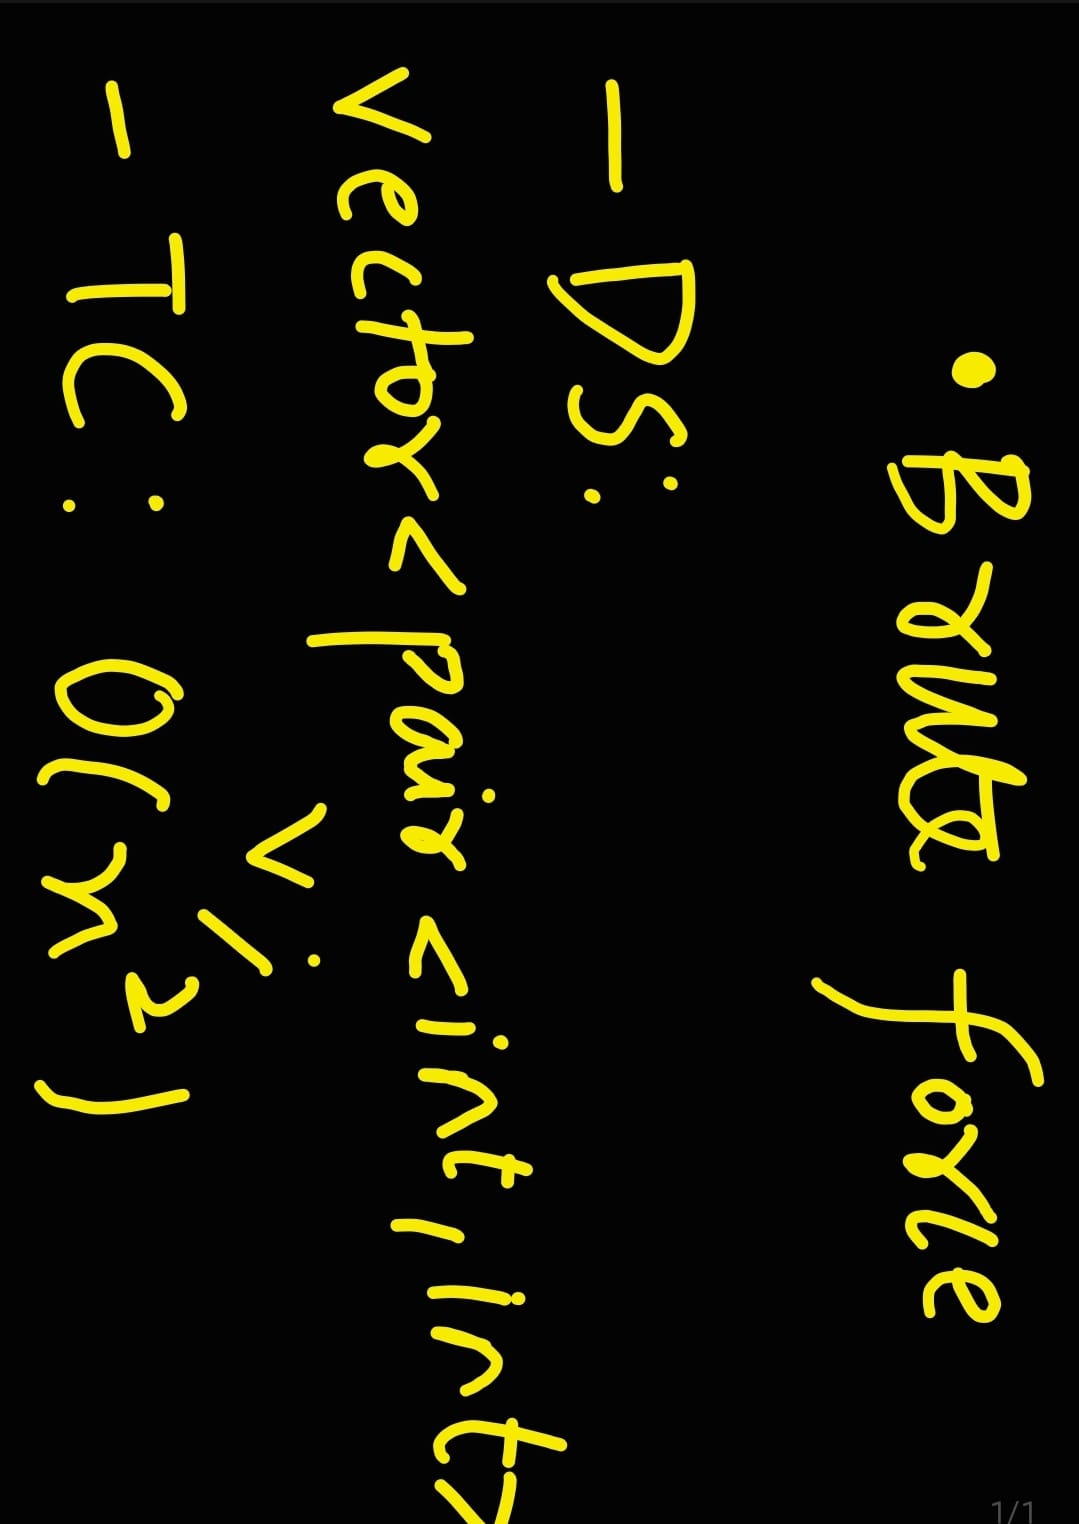 • Brute force
- DS:
vector<pair<int, int>
v;
- TC: O(n²)
1/1